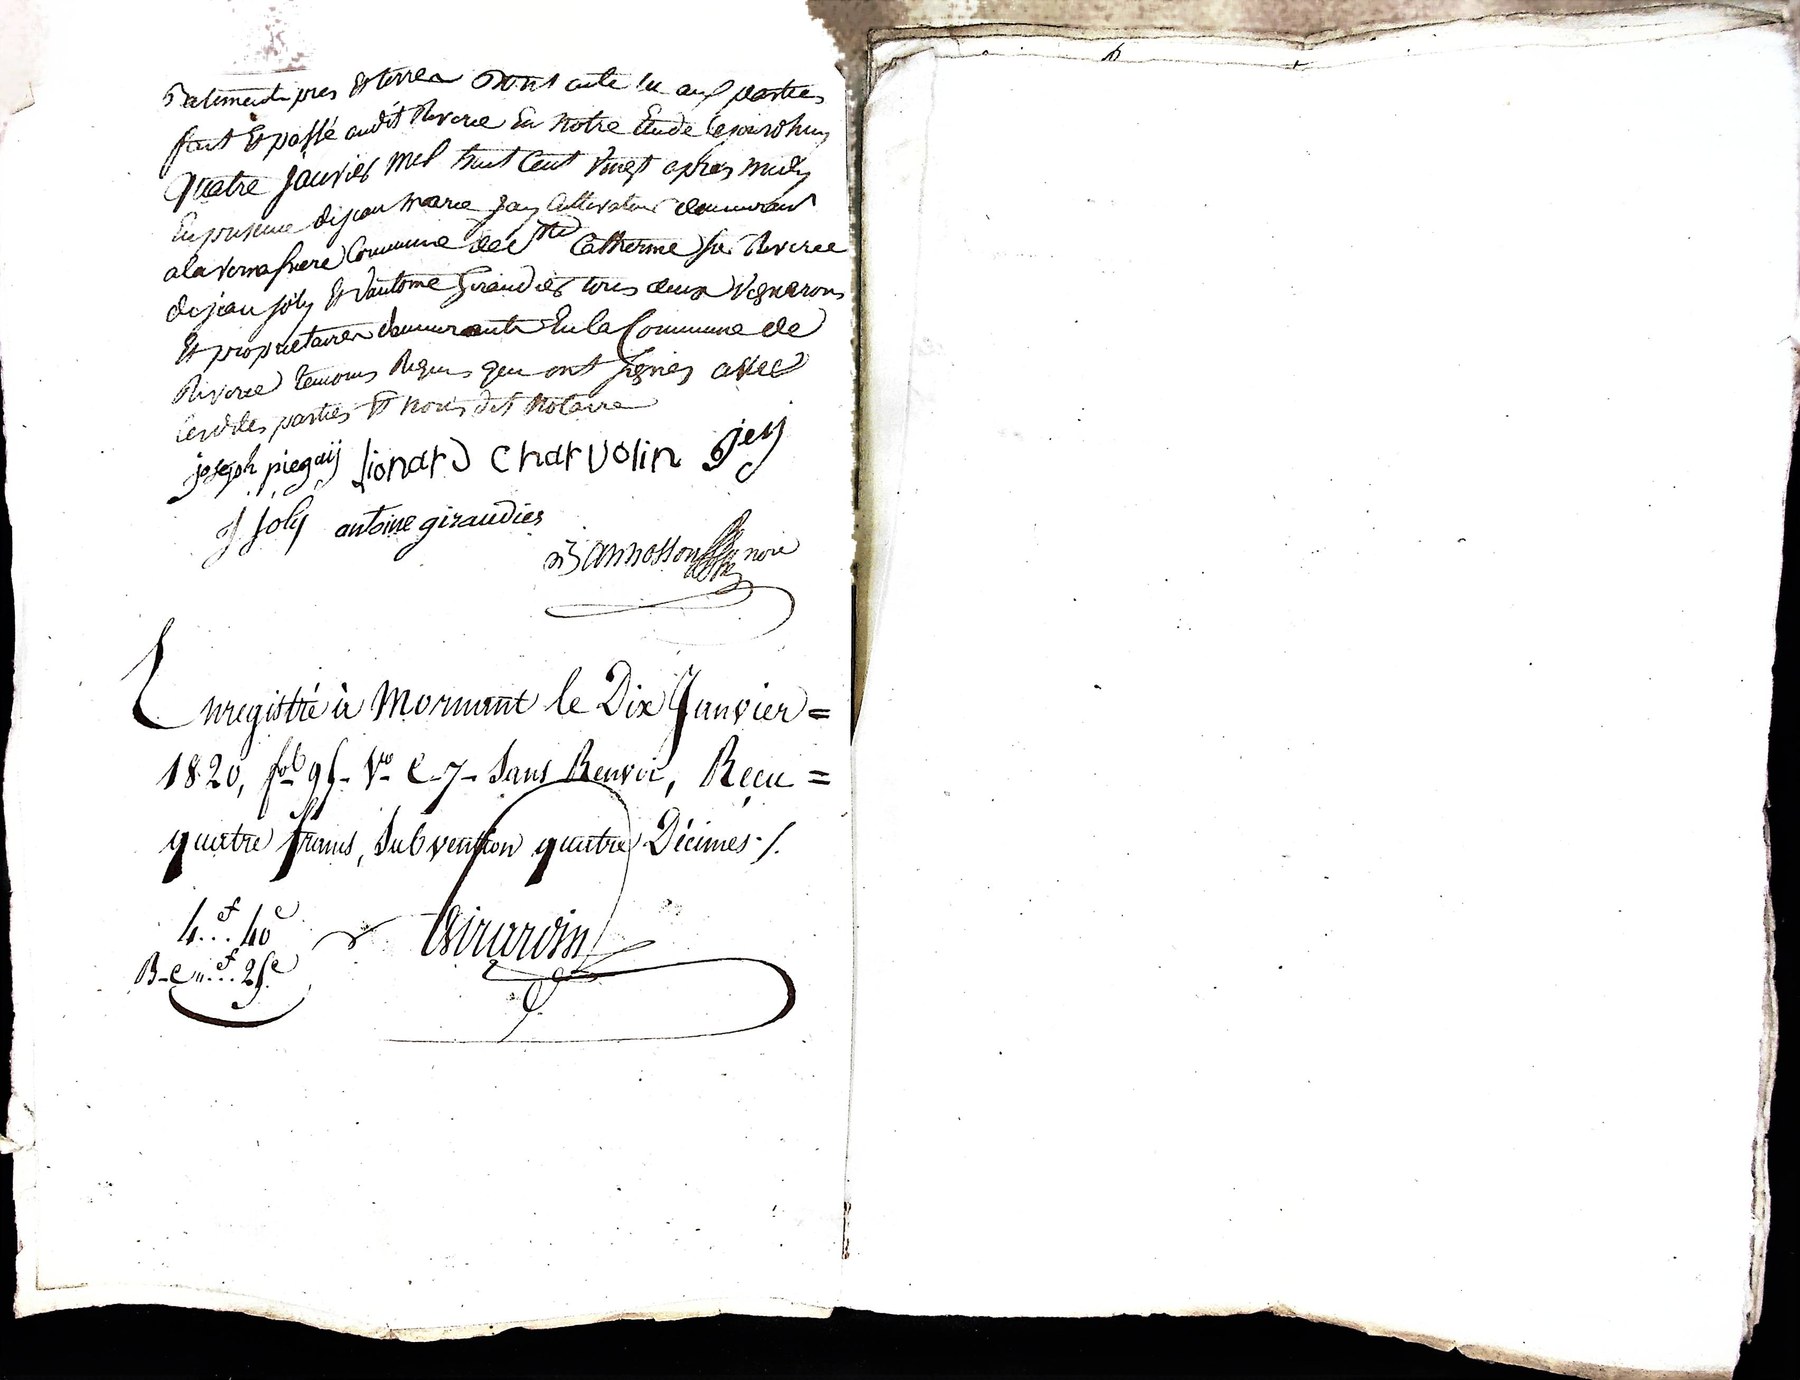 Batiments pres et terres Dont acte lu aux parties
fait et passé audit Riverie En Notre Etude Cejourdhuy
quatre janvier mil huit Cent vingt apres midy
En presence de jean marie jay Cultivateur demeurant
a la vernasiere Commune de Ste Catherine sur Riverie
de jean joly et d'antoine Giraudier tous deux vignerons
et proprietaires demeurants En la Commune de
Riverie temoins Requis qui ont signés avec
lesdites parties et nous dit notaire
joseph piegaÿ lionard charvolin jeÿ
J joly antoine giraudier
Bannosson nore
Enregistré à Mornant le Dix Janvier =
1820, fol 95 Vo C 7 Sans Renvoi, Reçu =
quatre francs, Subvention quatre Décimes ./.
4f... 40c
B-C "f... 25c
Girardin